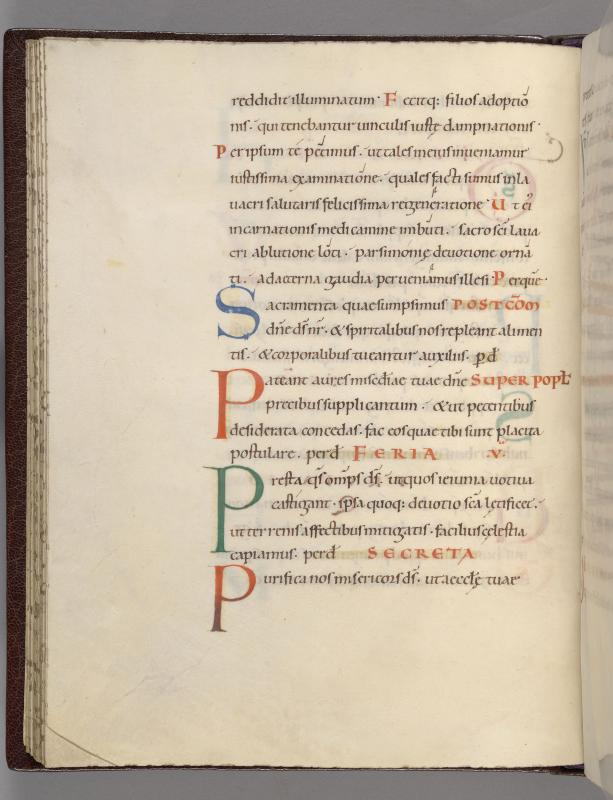 reddidit illuminatum· Fecitq: filios adoptiō
nis· qui tenebantur uinculis iustę dampnationis·
Per ipsum te petimus· ut tales in eius inueniamur
iustissima examinatione· quales facti sumus in la
uacri salutaris felicissima regeneratione· Ut ei
incarnationis medicamine imbuti· sacro sc̄i laua
cri ablutione loti· parsimonię deuotione orna
ti· ad aeterna gaudia perueniamus illesi· Per quē·
Sacramenta quae sumpsimus POSTCŌM
dn̄e ds̄ nr̄· & spiritalibus nos repleant alimen
tis· & corporalibus tueantur auxiliis· ꝑ d̄
Pateant aures misc̄diae tuae dn̄e SUPER POPL̄
precibus supplicantum· & ut petentibus
desiderata concedas· fac eos quae tibi sunt placita
postulare· per d̄ FERIA V·
Presta qs̄ omp̄s ds̄· ut quos ieiunia uotiua
castigant· ipsa quoq: deuotio sc̄a lętificet·
ut terrenis affectibus mitigatis· facilius cęlestia
capiamus· per d̄ SECRETA
Purifica nos misericors ds̄· ut aecclę tuae